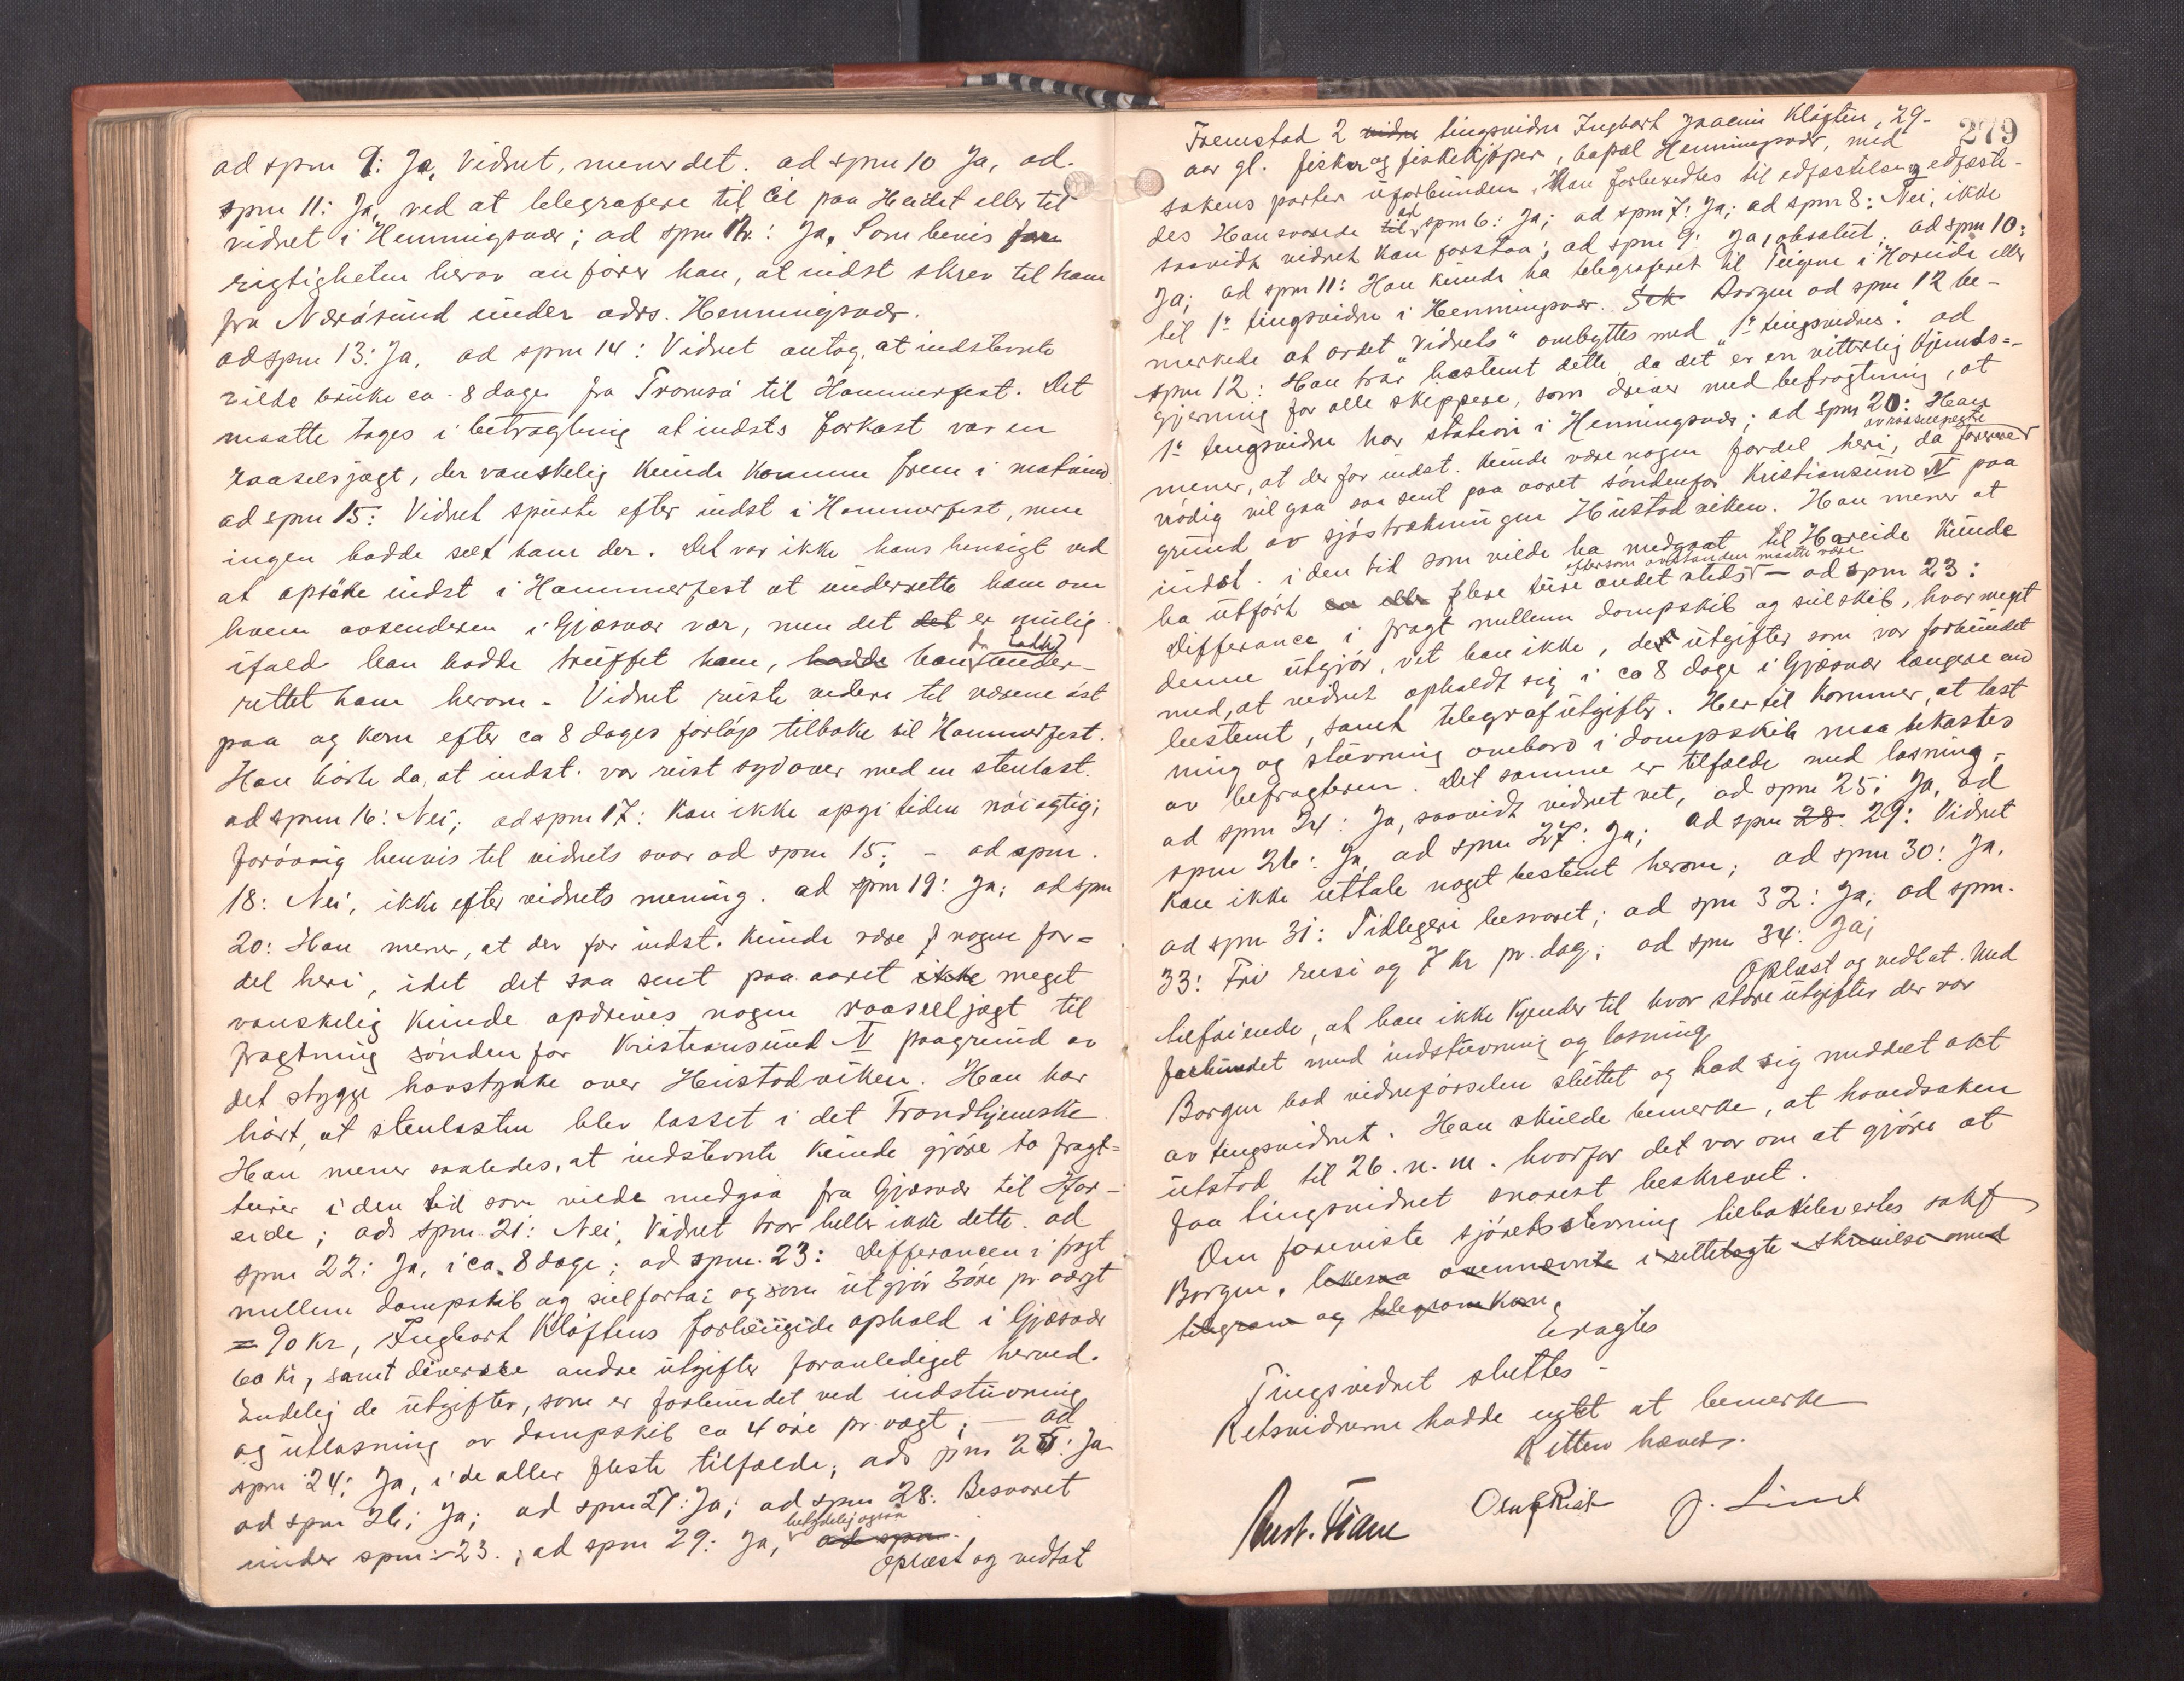 ad spm 9: Ja, Vidnet, mener det. ad spm 10 Ja, ad.
spm 11: Ja, ved at telegrafere til Eit paa Heidet eller til
vidnet i Henningsvær; ad spm 12: Ja, Som bevis for
rigtigheten herav anfører han, at indst skrev til ham
fra Nærøsund under adrs. Henningsvær.
ad spm 13: Ja, ad spm 14: Vidnet antog, at indstevnte
vilde bruke ca 8 dage fra Tromsø til Hammerfest. Det
maatte tages i betragtning at indsts farkost var en
raaseilsjagt, der vanskelig kunde komme frem i motvind
ad spm 15: Vidnet spurte efter indst i Hammerfest, men
ingen hadde seet ham der. Det var ikke hans hensigt ved
at opsøke indst i Hammerfest at underrette ham om
hvem avsenderen i Gjæsvær var, men det det er mulig
ifald han hadde truffet ham, hadde han da hadde under-
rettet ham herom. Vidnet reiste videre til værene øst
paa og kom efter ca 8 dages forløp tilbake til Hammerfest.
Han hørte da, at indst. var reist sydover med en stenlast.
ad spm 16: Nei; ad spm 17: Kan ikke opgi tiden nøiagtig;
forøvrig henvis til vidnets svar ad spm 15; - ad spm.
18: Nei, ikke efter vidnets mening. ad spm 19: Ja; ad spm
20: Han mener, at der for indst. kunde være nogen for=
del heri, idet det saa sent paa aaret ikke meget
vanskelig kunde opdrives nogen raaseiljagt til
fragtning søndenfor Kristiansund N paagrund av
det stygge havstykke over Hustadviken. Han har
hørt, at stenlasten blev losset i det Trondhjemske
Han mener saaledes, at indstevnte kunde gjøre to fragt=
turer i den tid som vilde medgaa fra Gjæsvær til Har-
eide; ad spm 21: Nei, Vidnet tror heller ikke dette. ad
spm 22: Ja, i ca. 8 dage; ad spm. 23: Differancen i fragt
mellem dampskib og seilfartøi og som utgjør 3 øre pr. vægt
= 90 kr, Ingbart Kløftens forlængede ophold i Gjæsvær
60 kr, samt diverse andre utgifter foranlediget herved.
Endelig de utgifter, som er forbundet ved indstuvning
og utlosning av dampskib ca 4 øre pr. vægt; - ad
spm 24: Ja, i de aller fleste tilfælde; ad spm 25: Ja
ad spm 26; Ja; ad spm 27: Ja; ad spm 28: Besvaret
under spm 23.; ad spm 29: Ja, betydelig ogsaa ad spm
Oplæst og vedtat
279
Fremstod 2 vidne tingsvidne Ingbart Joacim Kløften, 29-
aar gl. fisker og fiskekjøper, bopæl Henningsvær, med
sakens parter uforbunden. Han forberedtes til edfæstelse og edfæste-
des Han svarede til ad spm 6: Ja; ad spm 7: Ja; ad spm 8: Nei, ikke
saavidt vidnet kan forstaa; ad spm 9: Ja, absolut. ad spm 10:
Ja; ad spm 11: Han kunde ha telegraferet til Teigene i Hareide eller
til 1ste tingsvidne i Henningsvær. Borgen ad spm 12 be-
merkede at ordet "Vidnets" ombyttes med "1ste tingsvidnes". ad
spm 12: Han tror bestemt dette, da det er en vitterlig kjends=
gjerning for alle skippere, som driver med befragtning, at
1ste tingsvidne har station i Henningsvær; ad spm 20: Han
mener, at der for indst. kunde være nogen fordel heri, da førerne av raaseilsjagter
nødig vil gaa saa sent paa aaret søndenfor Kristiansund N paa
grund av sjøstrækningen Hustadviken. Han mener at
indst. i den tid som vilde ha medgaat til Hareide kunde
ha utført en eller flere ture andet steds eftersom avstanden maatte være - ad spm 23:
Differance i fragt mellem dampskib og seilskib, hvor meget
denne utgjør, vet han ikke, de utgifter som var forbundet
med, at vidnet opholdt sig i ca 8 dage i Gjæsvær længere end
bestemt, samt telegrafutgifter. Hertil kommer, at last
ning og stuvning ombord i dampskib maa bekostes
av befragteren. Det samme er tilfælde med losning,
ad spm 24: Ja, saavidt vidnet vet, ad spm 25: Ja, ad
spm 26: Ja, ad spm 27: Ja; ad spm 28. 29: Vidnet
kan ikke uttale noget bestemt herom; ad spm 30: Ja,
ad spm 31: Tidligere besvaret; ad spm 32: Ja; ad spm.
33: Fri reise og 7 kr pr. dag; ad spm 34: Ja;
Oplæst og vedtat. Med
tilføiende, at han ikke kjender til hvor store utgifter der var
forbundet med indstuvning og losning
Borgen bad vidneførselen sluttet og bad sig meddelt akt
av tingsvidnet. Han skulde bemerke, at hovedsaken
utstod til 26. n. m. hvorfor det var om at gjøre at
faa tingsvidnet snarest beskrevet.
Den foreviste sjøretsstevning tilbakelevertes sakf
Borgen. likesaa ovennævnte i rettelagte skrivelse med
telegram og telegramkonv.
Eragtes
Tingsvidnet sluttes -
Retsvidnerne hadde intet at bemerke
Retten hævet.